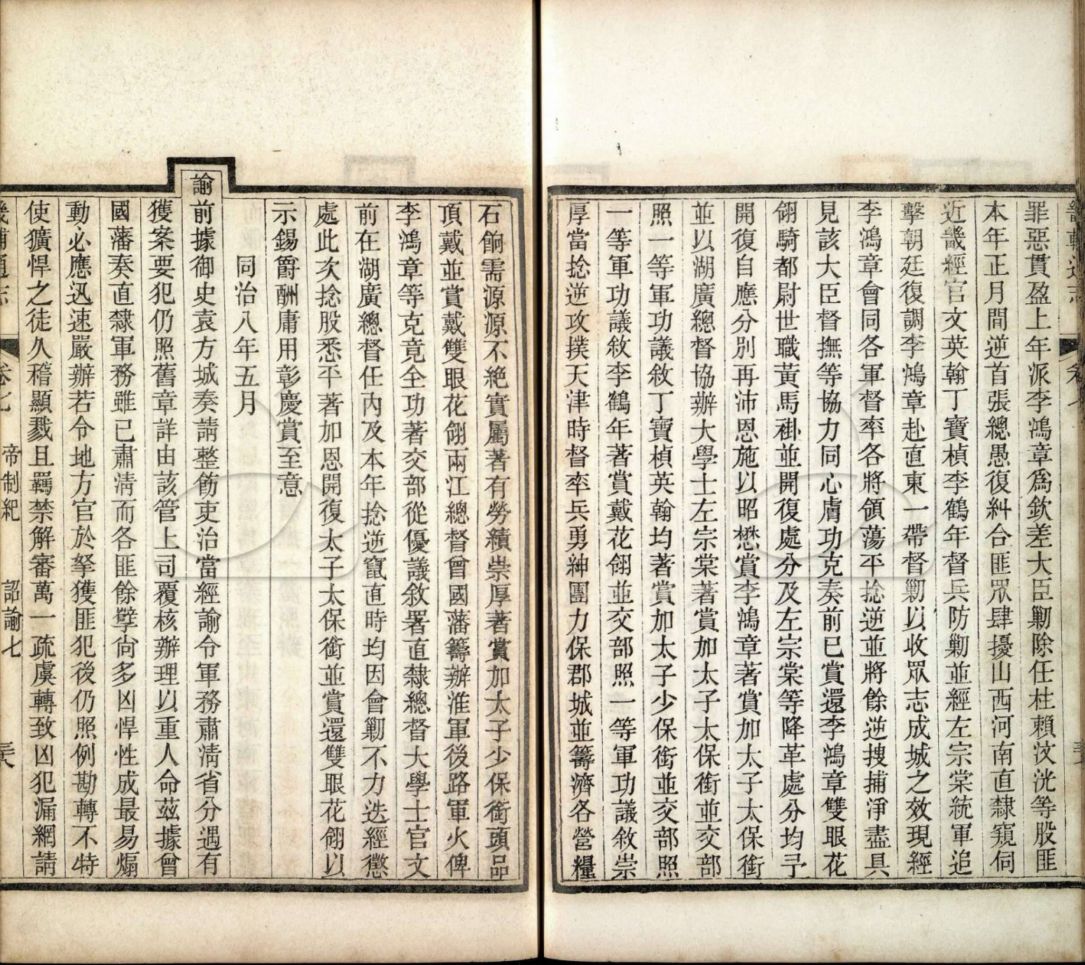 罪惡貫盈上年派李鴻章爲欽差大臣勦除任柱賴汶洸等股匪
本年正月間逆首張總愚復糾合匪眾肆擾山西河南直隸窺伺
近畿經官文英翰丁寶楨李鶴年督兵防勦並經左宗棠統軍追
擊朝廷復調李鴻章赴直東一帶督勦以收眾志成城之效現經
李鴻章會同各軍督率各將領蕩平捻逆並將餘逆搜捕淨盡具
見該大臣督撫等協力同心膚功克奏前已賞還李鴻章雙眼花
翎騎都尉世職黃馬褂並開復處分及左宗棠等降革處分均予
開復自應分別再沛恩施以昭懋賞李鴻章著賞加太子太保銜
並以湖廣總督協辦大學士左宗棠著賞加太子太保銜並交部
照一等軍功議敘丁寶楨英翰均著賞加太子少保銜並交部照
一等軍功議敘李鶴年著賞戴花翎並交部照一等軍功議敘崇
厚當捻逆攻撲天津時督率兵勇紳團力保郡城並籌濟各營糧
石餉需源源不絕實屬著有勞績崇厚著賞加太子少保銜頭品
頂戴並賞戴雙眼花翎兩江總督曾國藩籌辦淮軍後路軍火俾
李鴻章等克竟全功著交部從優議敘署直隸總督大學士官文
前在湖廣總督任內及本年捻逆竄直時均因會勦不力迭經懲
處此次捻股悉平著加恩開復太子太保銜並賞還雙眼花翎以
示錫爵酬庸用彰慶賞至意
同治八年五月
諭前據御史袁方城奏請整飭吏治當經諭令軍務肅清省分遇有
獲案要犯仍照舊章詳由該管上司覆核辦理以重人命茲據曾
國藩奏直隸軍務雖已肅清而各匪餘孽尚多凶悍性成最易煽
動必應迅速嚴辦若令地方官於拏獲匪犯後仍照例勘轉不特
使獷悍之徒久稽顯戮且羈禁解審萬一疏虞轉致凶犯漏網請
畿輔通志 卷七 帝制紀 詔諭七